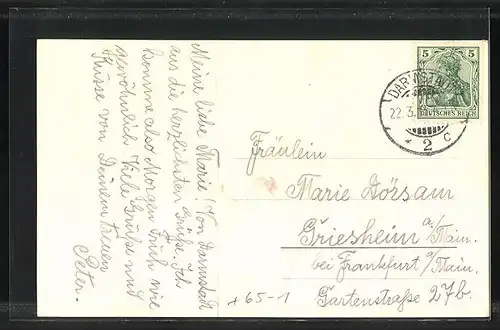 Meine liebe Marie! Von Darmstadt
aus die herzlichsten Grüße. Ich
komme also Morgen Früh wie
gewöhnlich. Viele Grüße und
Küsse von Deinem treuen
Peter.
5 5
DEUTSCHES REICH
DARMSTADT
22.3.
* 2 c
Fräulein
Marie Dörsam
Griesheim a/Main.
bei Frankfurt a/Main.
Gartenstraße 27b.
+65-1